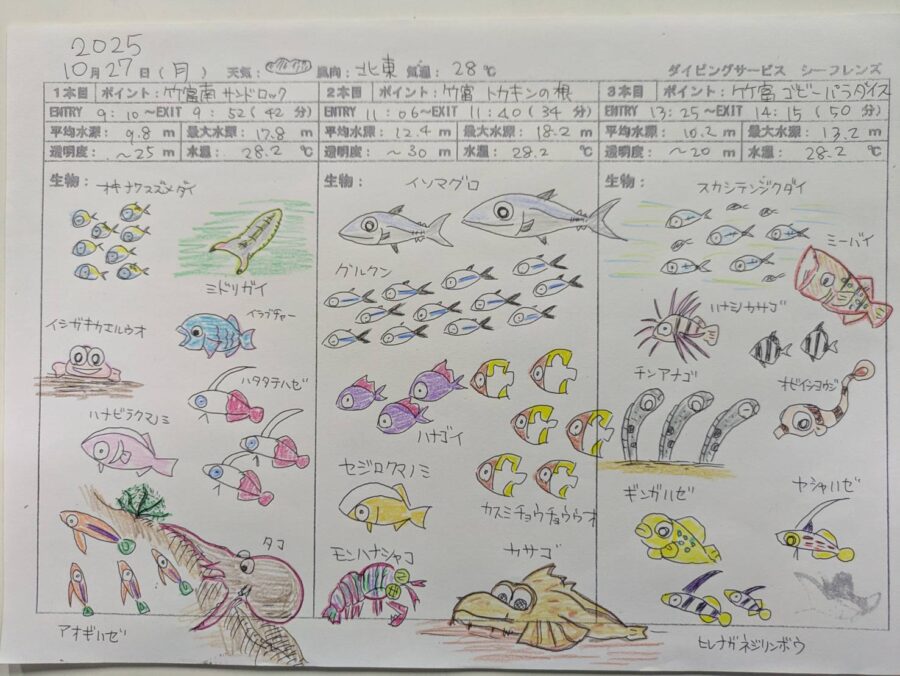 2025
10月27日(月) 天気: 風向: 北東 気温: 28℃ ダイビングサービス シーフレンズ
1本目 ポイント: 竹富南 サンドロック
ENTRY 9:10~EXIT 9:52(42分)
平均水深: 9.8 m 最大水深: 17.8 m
透明度: ~25 m 水温: 28.2 ℃
生物:
オキナワスズメダイ
ミドリガイ
イシガキカエルウオ
イラブチャー
ハタタテハゼ
ハナビラクマノミ
タコ
アオギハゼ
2本目 ポイント: 竹富 トカキンの根
ENTRY 11:06~EXIT 11:40(34分)
平均水深: 12.4 m 最大水深: 18.2 m
透明度: ~30 m 水温: 28.2 ℃
生物:
イソマグロ
グルクン
ハナゴイ
セジロクマノミ
カスミチョウチョウウオ
モンハナシャコ
カサゴ
3本目 ポイント: 竹富 ゴビーパラダイス
ENTRY 13:25~EXIT 14:15(50分)
平均水深: 10.2 m 最大水深: 13.2 m
透明度: ~20 m 水温: 28.2 ℃
生物:
スカシテンジクダイ
ミーバイ
ハナミノカサゴ
チンアナゴ
オビイシヨウジ
ギンガハゼ
ヤシャハゼ
ヒレナガネジリンボウ